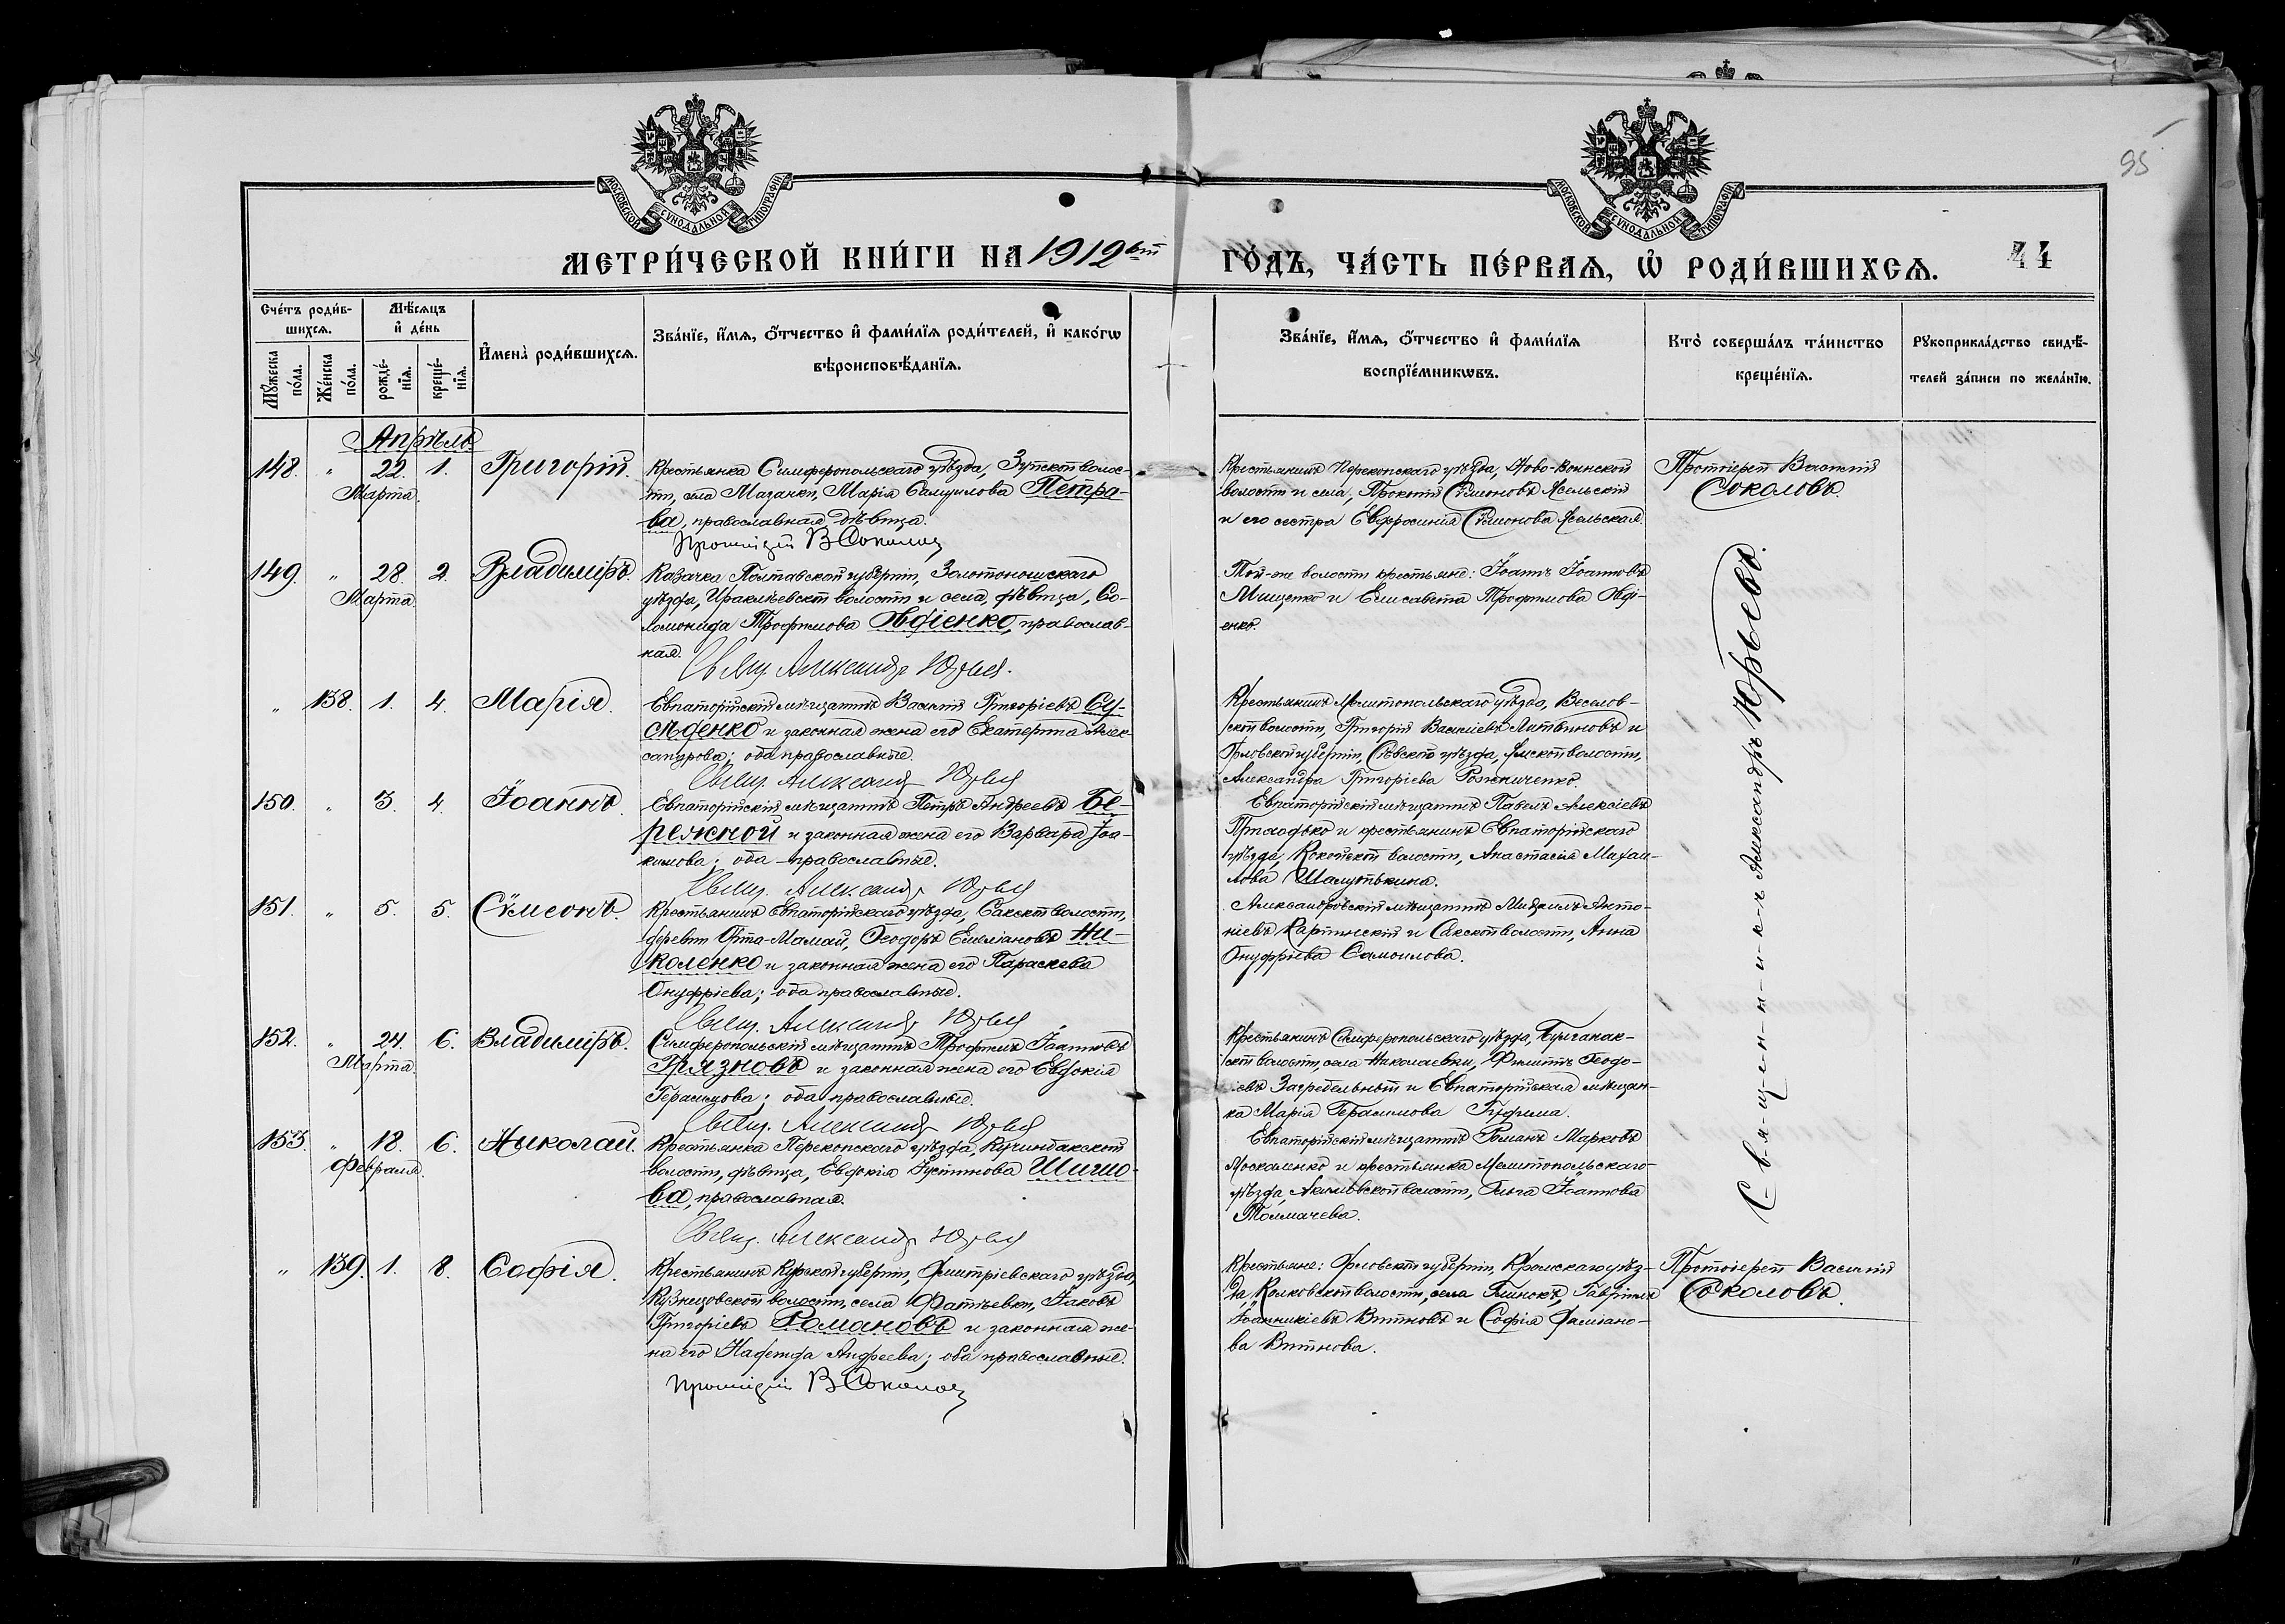 95
МОСКОВСКОЙ СѴНОДАЛЬНОЙ ТИПОГРАФІИ
МОСКОВСКОЙ СѴНОДАЛЬНОЙ ТИПОГРАФІИ
МЕТРИ́ЧЕСКОЙ КНИ́ГИ НА 1912 ый
ГО́ДЪ, ЧА́СТЬ ПЕ́РВАѦ, Ѡ҆ РОДИ́ВШИХСѦ.
44
Сче́тъ роди́в-
шихсѧ.
Мѣ́сѧцъ
и҆ де́нь
Мꙋ́жеска
по́ла.
Же́нска
по́ла.
рожде́-
нїѧ.
креще́-
нїѧ.
И҆мена̀ роди́вшихсѧ.
Зва́нїе, и҆́мѧ, ѻ҆́тчество и҆ фами́лїѧ роди́телей, и҆ како́гѡ
вѣроисповѣ́данїѧ.
Зва́нїе, и҆́мѧ, ѻ҆́тчество и҆ фами́лїѧ
воспрїе́мникѡвъ.
Кто̀ соверша́лъ та́инство
креще́нїѧ.
Рꙋкоприкла́дство свидѣ́-
телей за́писи по жела́нїю.
Апрѣль
148. " 22. 1. Григорій.
Марта.
Крестьянка Симферопольскаго уѣзда, Зуйской волос-
ти, села Мазанки, Марія Самуилова Петро-
ва, православная, дѣвица.
Протоіерей В Соколов
Крестьянинъ Перекопскаго уѣзда, Ново-
волости и села, Прокопій Сѵмеоновъ
и его сестра Евфросинія Сѵмеонова
Протоіерей Василій
Соколовъ.
149. " 28. 2. Владиміръ.
Марта
Казачка Полтавской губерніи, Золотоношскаго
уѣзда, Ираклѣевской волости и села, дѣвица, Со-
ломонида Трофимова Овдіенко, православ-
ная.
Свящ. Александр Юрьев.
Той-же волости крестьяне: Іоаннъ Іоанновъ
Мищенко и Елисавета Трофимова Овді-
енко.
" 138. 1. 4. Марія.
Евпаторійскій мѣщанинъ Василій Григоріевъ Су-
сѣденко и законная жена его Екатерина Алек-
сандрова; оба православные.
Свящ. Александр Юрьев
Крестьянинъ Мелитопольскаго уѣзда, Веселов-
ской волости, Григорій Василіевъ Литвиновъ и
Орловской губерніи, Сѣвскаго уѣзда, волости,
Александра Григоріева
150. " 3. 4. Іоаннъ.
Евпаторійскій мѣщанинъ Петръ Андреевъ Бе-
режной и законная жена его Варвара Іоа-
кимова; оба - православные.
Свящ. Александр Юрьев
Евпаторійскій мѣщанинъ Павелъ Алексіевъ
и крестьянинъ Евпаторійскаго
уѣзда, волости, Анастасія Михаи-
лова Шалутькина.
151. " 5. 5. Сѵмеонъ.
Крестьянинъ Евпаторійскаго уѣзда, Сакской волости,
деревни Орта-Мамай, Ѳеодоръ Емеліановъ Ни-
коленко и законная жена его Параскева
Онуфріева; оба православные.
Свящ. Александр Юрьев
Александровскій мѣщанинъ Михаилъ Анто-
ніевъ Картинскій и Сакской волости, Анна
Онуфріева Самоилова.
152. " 24. 6. Владиміръ.
Марта
Симферопольскій мѣщанинъ Трофимъ Іоанновъ
Грязновъ и законная жена его Евдокія
Герасимова; оба православные.
Свящ. Александр Юрьев
Крестьянинъ Симферопольскаго уѣзда, Булганак-
ской волости, села Николаевки, Филиппъ Ѳеодо-
ровъ и Евпаторійская мѣщан-
ка Марія Герасимова
153. " 18. 6. Николай.
Февраля.
Крестьянка Перекопскаго уѣзда, волости, дѣвица, Евдокія Іустинова Шишо-
ва, православная.
Свящ. Александр Юрьев
Евпаторійскій мѣщанинъ Романъ Марковъ
Москаленко и крестьянка Мелитопольскаго
уѣзда, Акимовской волости, Ольга Іоаннова
Толмачева.
С-в-я-щ-е-н-н-и-к-ъ Александръ Юрьевъ.
" 139. 1. 8. Софія.
Крестьянинъ Курской губерніи, Дмитріевскаго уѣзда,
Кузнецовской волости, села Фатѣевки, Іаковъ
Григоріевъ Романовъ и законная же-
на его Надежда Андреева; оба православные.
Протоіерей В Соколов
Крестьяне: Орловской губерніи, Кромскаго уѣз-
да, волости, села Гавріилъ
Іоанникіевъ и Софія Даміано-
ва
Протоіерей Василій
Соколовъ.